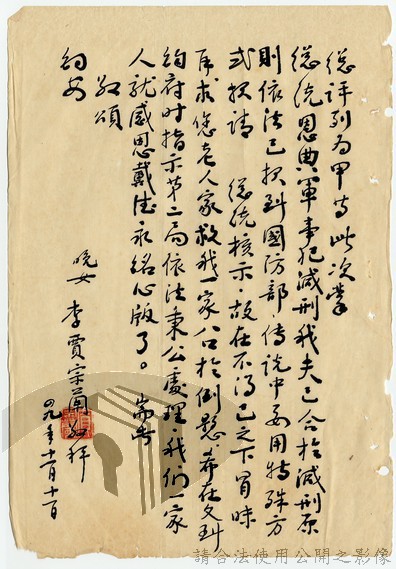 總評列為甲等此次蒙
總統恩典軍事犯減刑我夫已合於減刑原
則依法已报到國防部傳說中要用特殊方
式报請　總統核示·故在不得已之下冒昧
再求您老人家救我一家八口於倒懸希在文到
鈞府时指示第二局依法秉公處理我们一家
人就感恩戴德永銘心版了。耑此
敬頌
鈞安
晚女 李賈宗蘭敬拜
四九年十一月十一日
請合法使用公開之影像